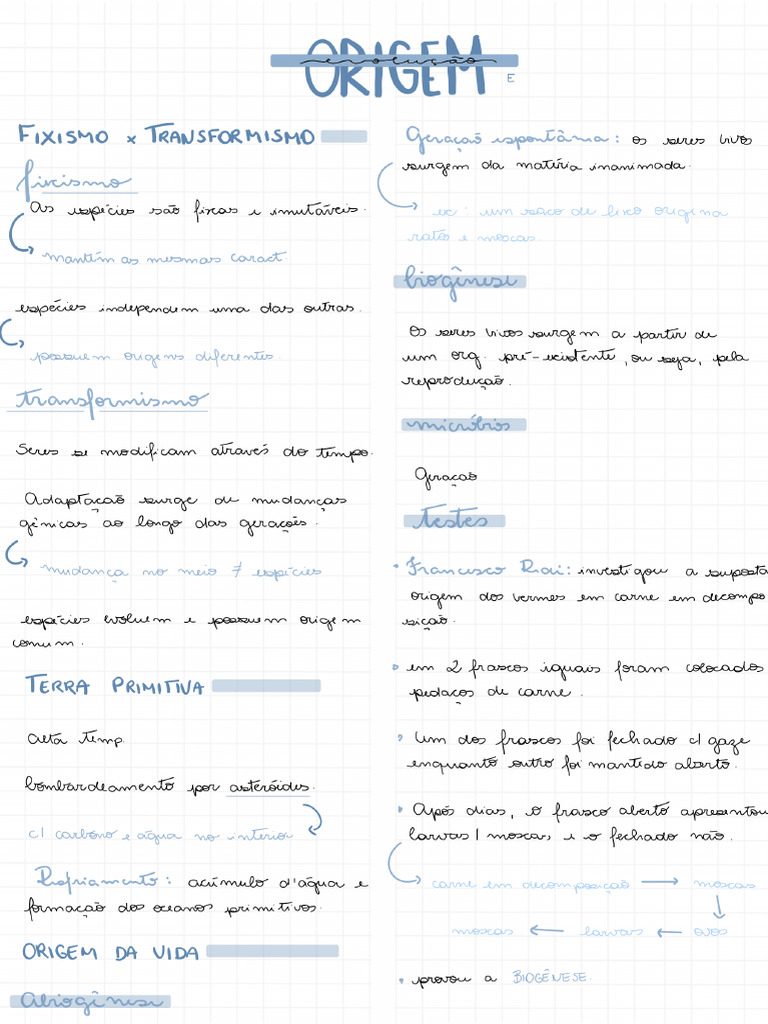 ORIGEM
evolução
E
FIXISMO x TRANSFORMISMO
fixismo
As espécies são fixas e imutáveis.
mantém as mesmas caract.
espécies independem uma das outras.
possuem origens diferentes.
transformismo
Seres se modificam através do tempo.
Adaptação surge de mudanças
gênicas ao longo das gerações.
mudança no meio ≠ espécies
espécies evoluem e possuem origem
comum.
TERRA PRIMITIVA
alta temp.
bombardeamento por asteróides.
c/ carbono e água no interior
Resfriamento: acúmulo d'água e
formação dos oceanos primitivos.
ORIGEM DA VIDA
Abiogênese
Geração espontânea: os seres vivos
surgem da matéria inanimada.
ex: um saco de lixo origina
ratos e moscas
biogênese
Os seres vivos surgem a partir de
um org. pré-existente, ou seja, pela
reprodução.
micróbios
Geração
testes
• Francisco Redi: investigou a suposta
origem dos vermes em carne em decompo
sição.
• em 2 frascos iguais foram colocados
pedaços de carne.
• Um dos frascos foi fechado c/ gaze
enquanto outro foi mantido aberto.
• Após dias, o frasco aberto apresentou
larvas/moscas, e o fechado não.
carne em decomposição → moscas
↓
moscas ← larvas ← ovos
• provou a BIOGÊNESE.